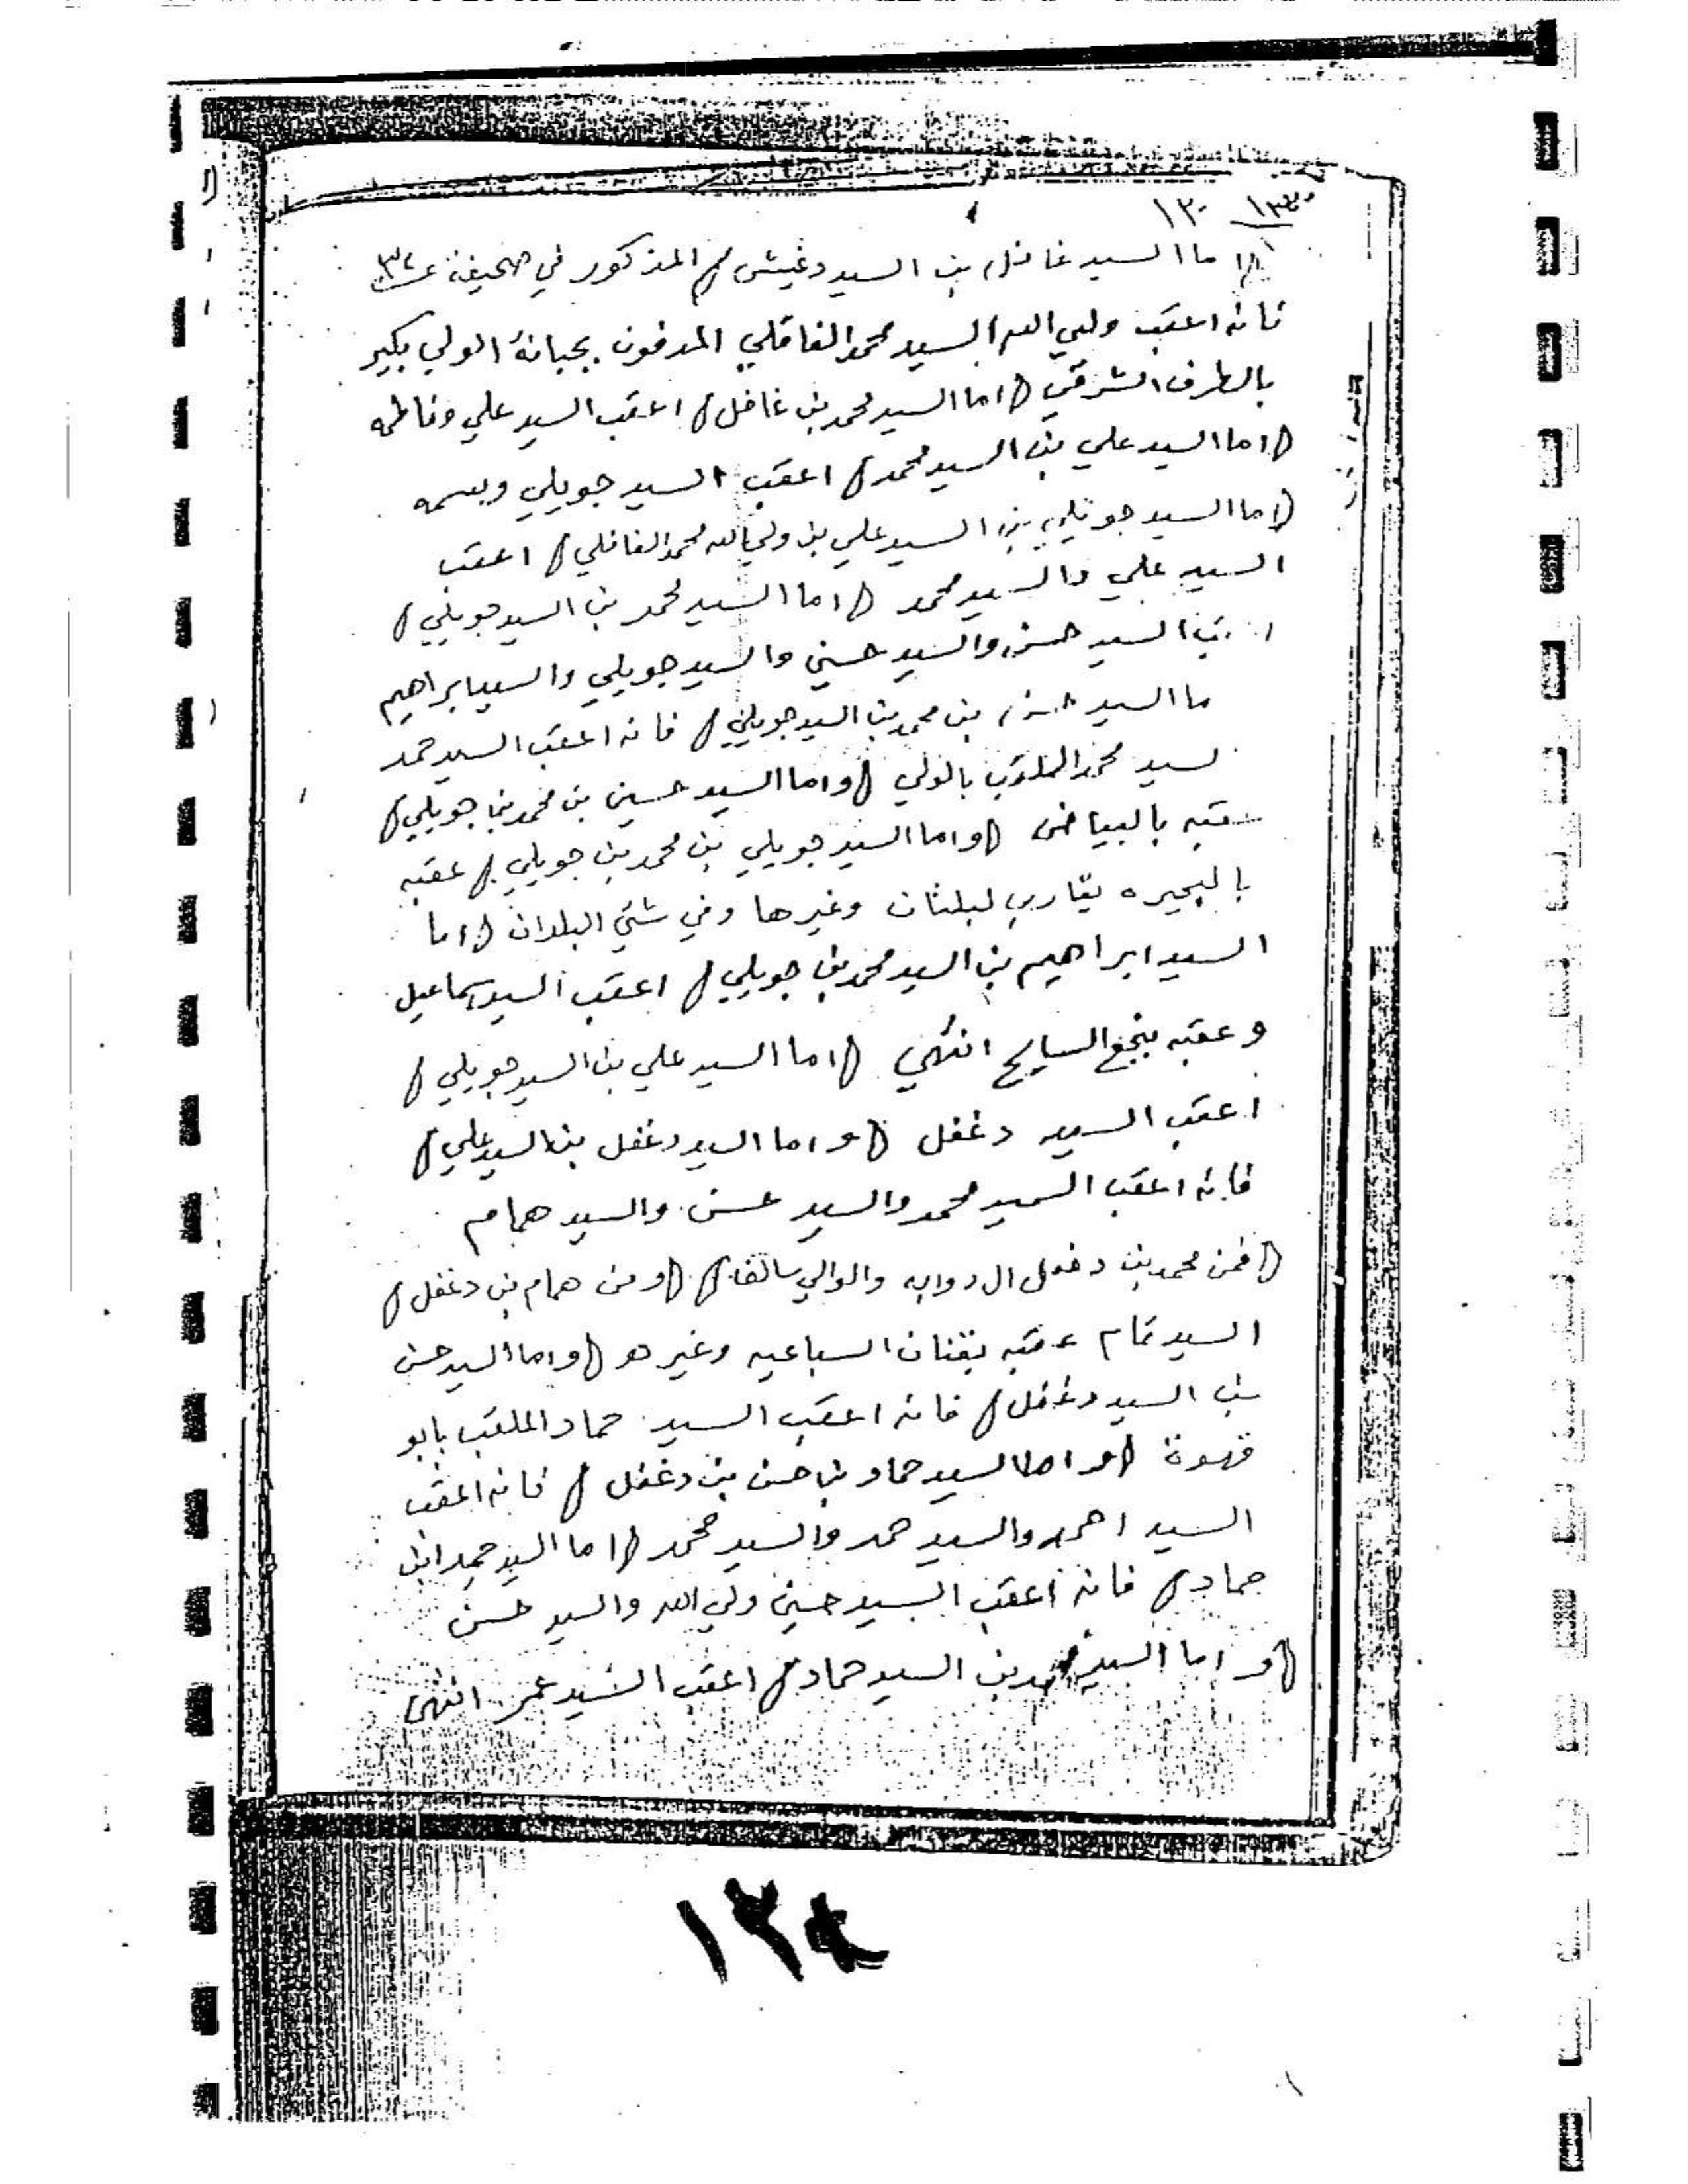 ١٣٠
اما السيد غافل بن السيد دغيش) المذكور في صحيفة
فانه اعقب ولي الله السيد محمد الغافلي المدفون بجبانة الولي بكير
بالطرف الشرقي (اما السيد محمد بن غافل) اعقب السيد علي وفاطمه
(اما السيد علي بن السيد محمد) اعقب السيد جويلي وبسمه
(اما السيد جويلي بن السيد علي بن ولي الله محمد الغافلي) اعقب
السيد علي والسيد محمد (اما السيد محمد بن السيد جويلي)
السيد حسن والسيد حسين والسيد جويلي والسيد ابراهيم
ما السيد حسن بن محمد بن السيد جويلي) فانه اعقب السيد حمد
لسيد محمد الملقب بالولي (واما السيد حسين بن محمد بن جويلي)
عقبه بالبياض (واما السيد جويلي بن محمد بن جويلي) عقبه
بالبحيره وغيرها وفي شتي البلدان (اما
السيد ابراهيم بن السيد محمد بن جويلي) اعقب السيد اسماعيل
وعقبه بنجع السايح انتهي (اما السيد علي بن السيد جويلي)
اعقب السيد دغفل (واما السيد دغفل بن السيد علي)
فانه اعقب السيد محمد والسيد حسن والسيد همام
(فمن محمد بن دغفل ال (ومن همام بن دغفل)
السيد تمام عقبه السباعيه وغيرهو (واما السيد حسن
بن السيد دغفل) فانه اعقب السيد حماد الملقب بابو
قهوة (واما السيد حماد بن حسن بن دغفل) فانه اعقب
السيد احمد والسيد حمد والسيد محمد (اما السيد حمد ابن
حماد) فانه اعقب السيد حسين ولي الله والسيد حسن
(واما السيد بن السيد حماد) اعقب السيد عمر انتهي